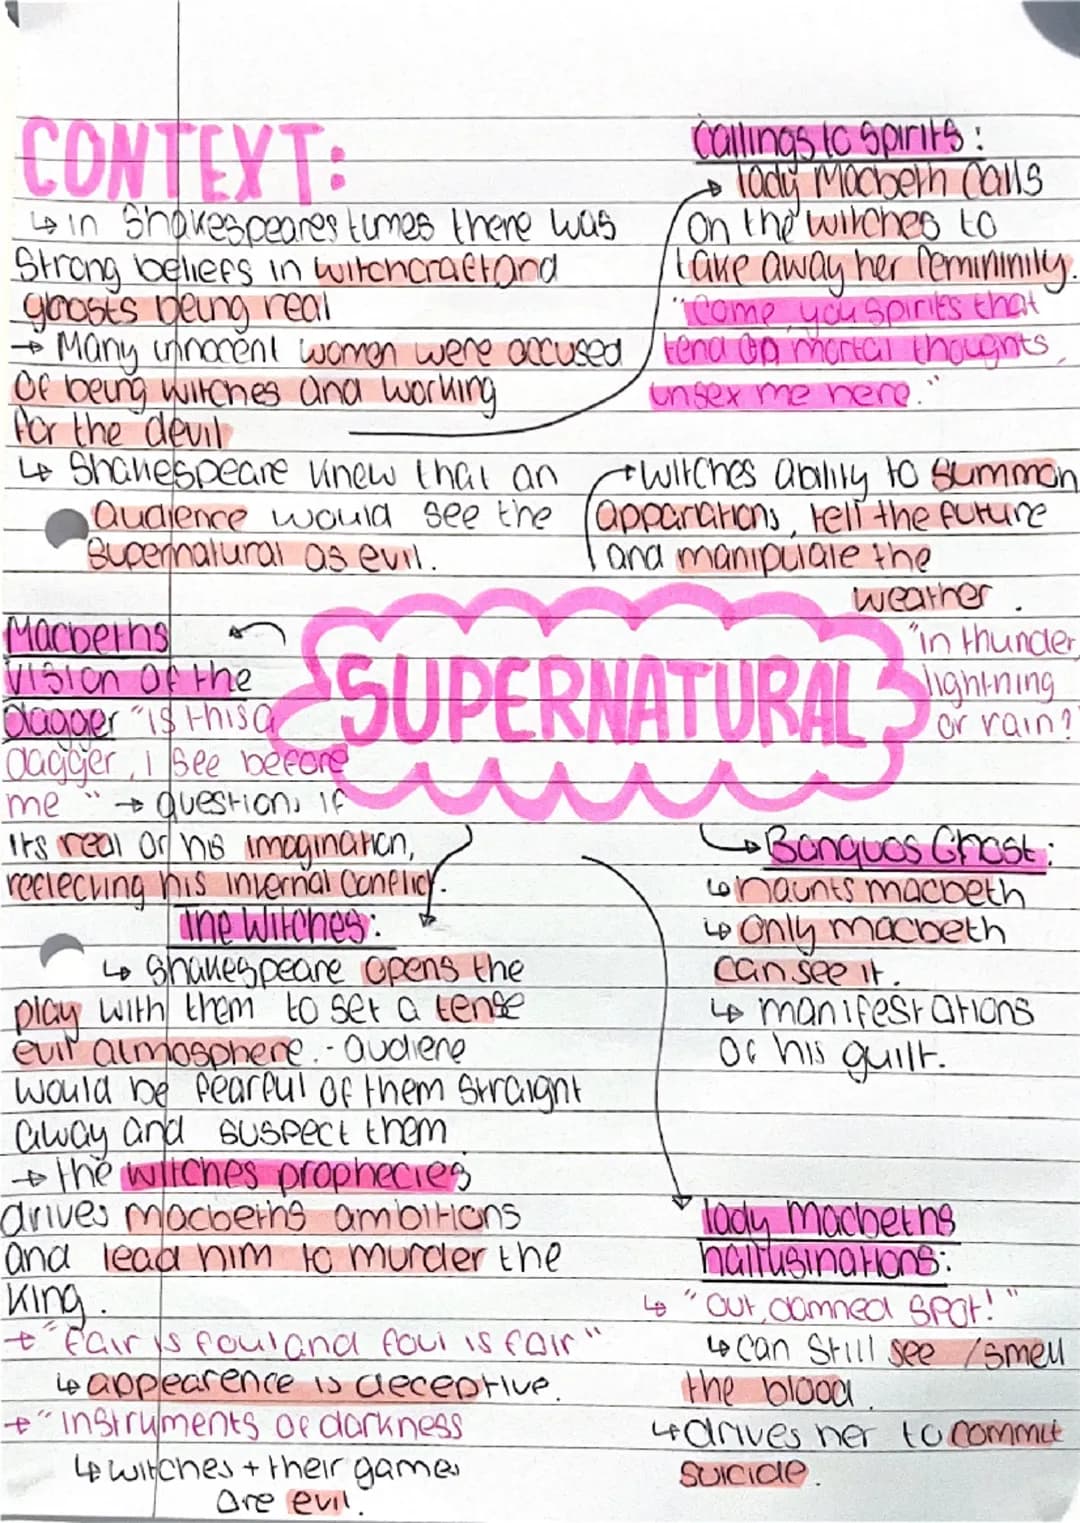 CONTEXT:
↳ in Shakespeares times there was
Strong beliefs in witchcraft and
ghosts being real
→ Many innocent women were accused
of being witches and working
for the devil
↳ Shakespeare knew that an
audience would see the
supernatural as evil.
Callings to Spirits:
→ lady Macbeth calls
on the witches to
take away her femininity.
"Come you spirits that
tend on mortal thoughts,
unsex me here."
→ witches ability to summon
apparations, tell the future
and manipulate the
weather.
"in thunder,
lightning
or rain?"
SUPERNATURAL
Macbeths
vision of the
dagger "is this a
dagger, I see before
me" → question, if
its real or his imagination,
reflecting his internal conflict.
The Witches:
↳ Shakespeare opens the
play with them to set a tense
evil atmosphere. - audiene
would be fearful of them straight
away and suspect them
→ the witches prophecies
drives macbeths ambitions
and lead him to murder the
King.
→ "fair is foul and foul is fair"
↳ appearence is deceptive.
→ "instruments of darkness
↳ witches + their games
are evil.
→ Banquos Ghost:
↳ haunts macbeth
↳ Only macbeth
can see it.
↳ manifestations
of his guilt.
lady macbeths
hallusinations:
↳ "Out, damned spot!"
↳ can still see / smell
the blood.
↳ drives her to commit
suicide.